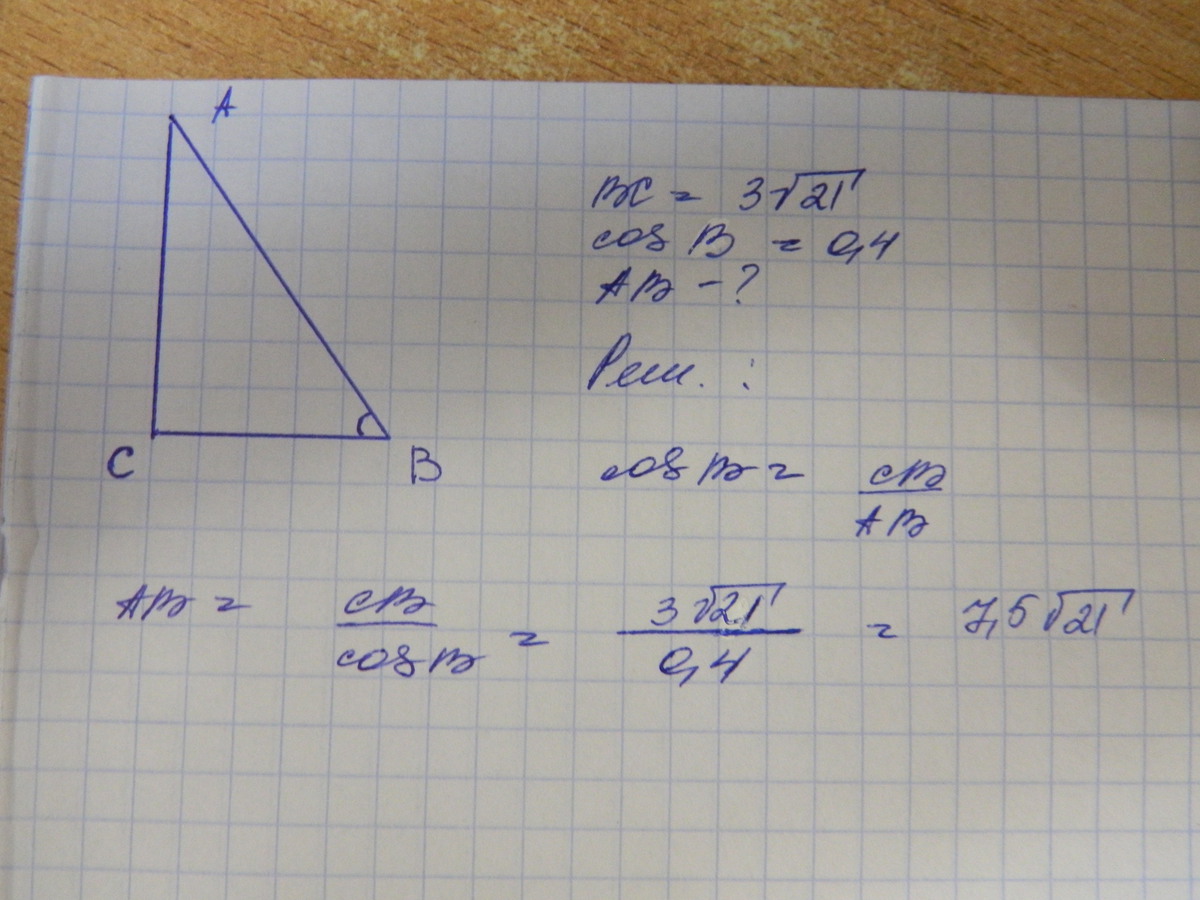 A
C
B
BC = 3√21
cos B = 0,4
AB - ?
Реш. :
cos B = CB/AB
AB = CB/cos B = 3√21/0,4 = 7,5√21